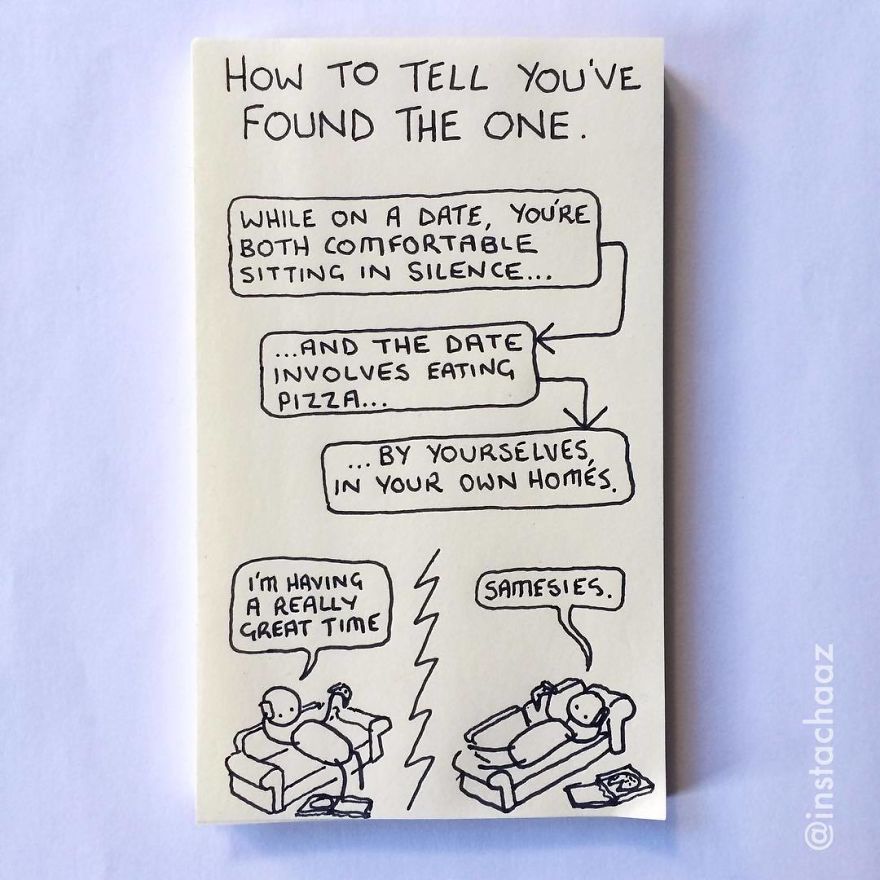 HOW TO TELL YOU'VE
FOUND THE ONE.
WHILE ON A DATE, YOU'RE
BOTH COMFORTABLE
SITTING IN SILENCE...
...AND THE DATE
INVOLVES EATING
PIZZA...
...BY YOURSELVES,
IN YOUR OWN HOMES.
I'M HAVING
A REALLY
GREAT TIME
SAMESIES.
@instachaaz